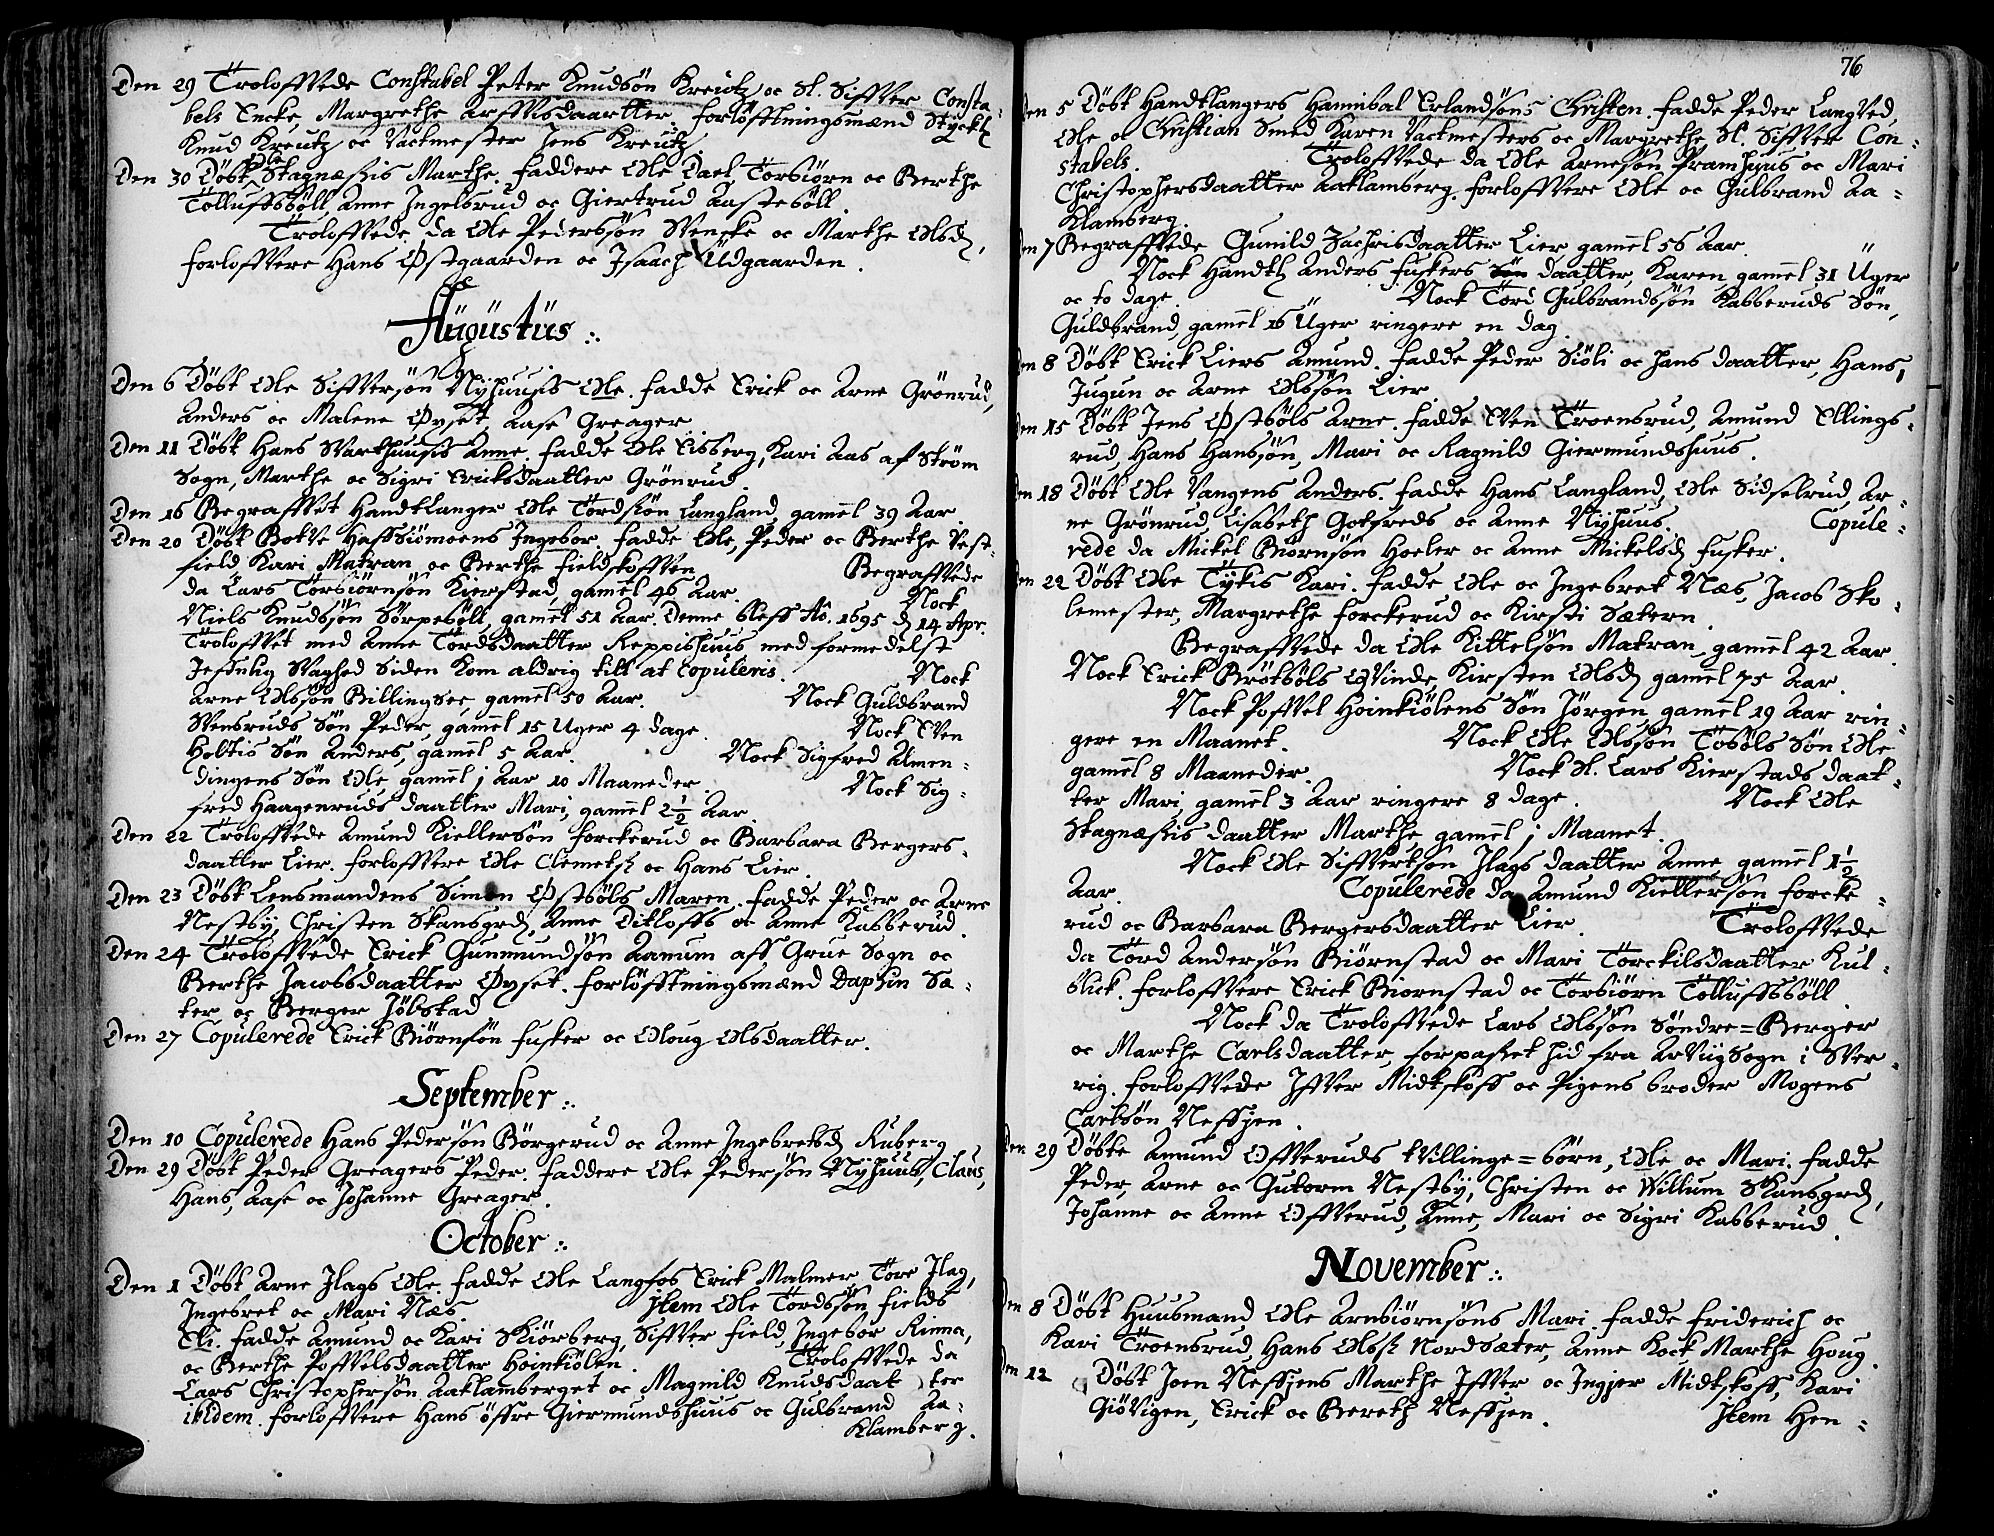 Den 29 Trolofvede Constabel Peter Knudsøn Kreutz oc Sl. Sifver Consta-
bels Encke, Margrethe Arfvisdaatter. forløfftningsmænd Stycktz
Knud Kreutz oc Vactmester Jens Kreutz.
Den 30 Døbt Ole Stagnæssis Marthe. faddere Ole Dael, Torbiørn oc Berthe
Tolluffsbøll, Anne Ingelsrud oc Giertrud Aastebøll.
Trolofvede da Ole Pedersøn Svenske oc Marthe Olsd.
forlofvere Hans Østgaarden oc Isaach Udgaarden.
Augustus
Den 6 Døbt Ole Sifversøn Nyhuuss Ole. fadde Erick oc Arne Grønrud,
Anders oc Malene Øyset, Aase Greager.
Den 11 Døbt Hans Varthuuss Anne. fadde Ole Eisberg, Kari Aas af Strøm
Sogn, Marthe oc Sigri Ericksdaatter Grønrud.
Den 16 Begrafvet Handtlanger Ole Tordsøn Langland, gamel 39 Aar
Den 20 Døbt Botve Hafsiømoens Ingebor. fadde Ole, Peder oc Berthe Vest-
field Kari Matran oc Berthe fieldskofven. Begrafvede
da Lars Torbiørnsøn Kierstad, gamel 46 Aar. Nock
Niels Knudsøn Sørpebøll, gamel 51 Aar. Denne blef Ao. 1695 d 14 Apr.
Trolofvet med Anne Tordsdaatter Reppishuus med formedelst
Jefnlig Svaghed siden kom aldrig till at copuleris. Nock
Arne Olsøn Billingsee, gamel 50 Aar. Nock Guldbrand
Svensruds Søn Peder, gamel 15 Uger 4 dage. Nock Even
Holtis Søn Anders, gamel 5 Aar. Nock Sigfred Almen-
dingens Søn Ole, gamel j Aar 10 Maaneder. Nock Sig-
fred Haagenruds daatter Mari, gamel 2½ Aar.
Den 22 Trolofvede Amund Kiellersøn forckerud oc Barbara Bergers-
daatter Lier. forlofvere Ole Clemets. oc Hans Lier.
Den 23 Døbt Lensmandens Simon Østbøls Maren. fadde Peder oc Arne
Nestby, Christen Skansgrd, Anne Ditlofs oc Anne Kabberud.
Den 24 Trolofvede Erick Gunmundsøn Aamum aff Grue Sogn oc
Berthe Jacobsdaatter Øyset. forløfftningsmænd Daphin Sæ-
ter oc Berger Jøbstad
Den 27 Copulerede Erick Biørnsøn fusker oc Oloug Olsdaatter.
September
Den 10 Copulerede Hans Pedersøn Børgerud oc Anne Ingebretsd Ruberg
Den 29 Døbt Peder Greagers Peder. faddere Ole Pedersøn Nyhuus, Claus,
Hans, Aase oc Johanne Greager.
October
Den 1 Døbt Arne Ilags Ole. fadde Ole Langfos Erick Malmer, Tore Ilag,
Ingebret oc Mari Næs. Item Ole Tordssøn fields
Eli. fadde Amund oc Kari Skiørberg, Sifver field, Ingebor Rinna,
oc Berthe Pofvelsdaatter Hoinkiølen. Trolofvede da
Lars Christophersøn Aaklamberget oc Magnild Knudsdaatter
ibidem. forlofvere Hans øfre Giermundshuus oc Gulbrand Aa-
Klamberg.
76
Den 5 Døbt Handtlangers Hannibal Erlandsøns Christen. fadde Peder Langved,
Ole oc Christian Smed Karen Vactmesters oc Margrethe Sl. Sifver Con-
stabels. Trolofvede da Ole Arnesøn Framhuus oc Mari
Christophersdaatter Aaklamberg. forlofvere Ole oc Gulbrand Aa-
Klamberg.
Den 7 Begrafvede Gunild Zachrisdaatter Lier gamel 56 Aar.
Nock Handtl. Anders fuskers daatter, Karen gamel 31 Uger
oc to dage. Nock Tord Gulbrandssøn Kabberuds Søn,
Guldbrand, gamel 16 Uger ringere en dag.
Den 8 Døbt Erick Liers Amund. fadde Peder Siøli oc hans daatter, Hans,
Jugun oc Arne Olssøn Lier
Den 15 Døbt Jens Østbøls Arne. fadde Even Troensrud, Amund Ellings-
rud, Hans Hanssøn, Mari oc Ragnild Giermundshuus.
Den 18 Døbt Ole Vangens Anders. fadde Hans Langland, Ole Sidselrud, Ar-
ne Grønrud, Lisabeth Gotfreds oc Anne Nyhuus. Copule-
rede da Mickel Biørnsøn Hoeler oc Anne Mickelsd fusker.
Den 22 Døbt Ole Tykis Kari. fadde Ole oc Ingebret Næs, Jacob Sko-
lemester, Margrethe forckerud oc Kirsti Sætern.
Begrafvede da Ole Kittelsøn Matran, gamel 42 Aar.
Nock Erick Brøtbøls Qvinde, Kirsten Olsd gamel 75 Aar.
Nock Pofvel Hoinkiølens Søn Jørgen, gamel 19 Aar rin-
gere en Maanet. Nock Ole Olssøn Tøbøls Søn Ole
gamel 8 Maaneder. Nock Sl. Lars Kierstads daat-
ter Mari, gamel 3 Aar ringere 8 dage. Nock Ole
Stagnæssis daatter Marthe, gamel j Maanet.
Nock Ole Sifvertsøn Ilags daatter Anne gamel 1½
Aar. Copulerede da Amund Kiellersøn forcke-
rud oc Barbara Bergersdaatter Lier. Trolofvede
da Tord Andersøn Biørnstad oc Mari Torckilsdaatter Kul-
blick. forlofvere Erick Biornstad oc Torbiørn Tolluffsbøll.
Nock da Trolofvede Lars Olssøn Søndre=Berger
oc Marthe Carlsdaatter, forpasset hid fra Arviig Sogn i Sver-
rig. forlofvede Ifver Midtskoff oc Pigens broder Mogens
Carlsøn Neffjen.
Den 29 Døbte Amund Ofveruds tvillinge=børn, Ole oc Mari. fadde
Peder, Arne oc Gutorm Nestby, Christen oc Willum Skansgrd,
Johanne oc Anne Ofverud, Anne, Mari oc Sigri Kabberud.
November
Den 8 Døbt Huusmand Ole Arnbiørnsøns Mari. fadde Friderich oc
Kari Troensrud, Hans Olss. Nordsæter, Anne Kock Marthe Houg.
Den 12 Døbt Joen Neffjens Marthe Ifver oc Ingjer Midtskoff, Kari
Giøvigen, Erick oc Bereth Neffjen. Item Hen-